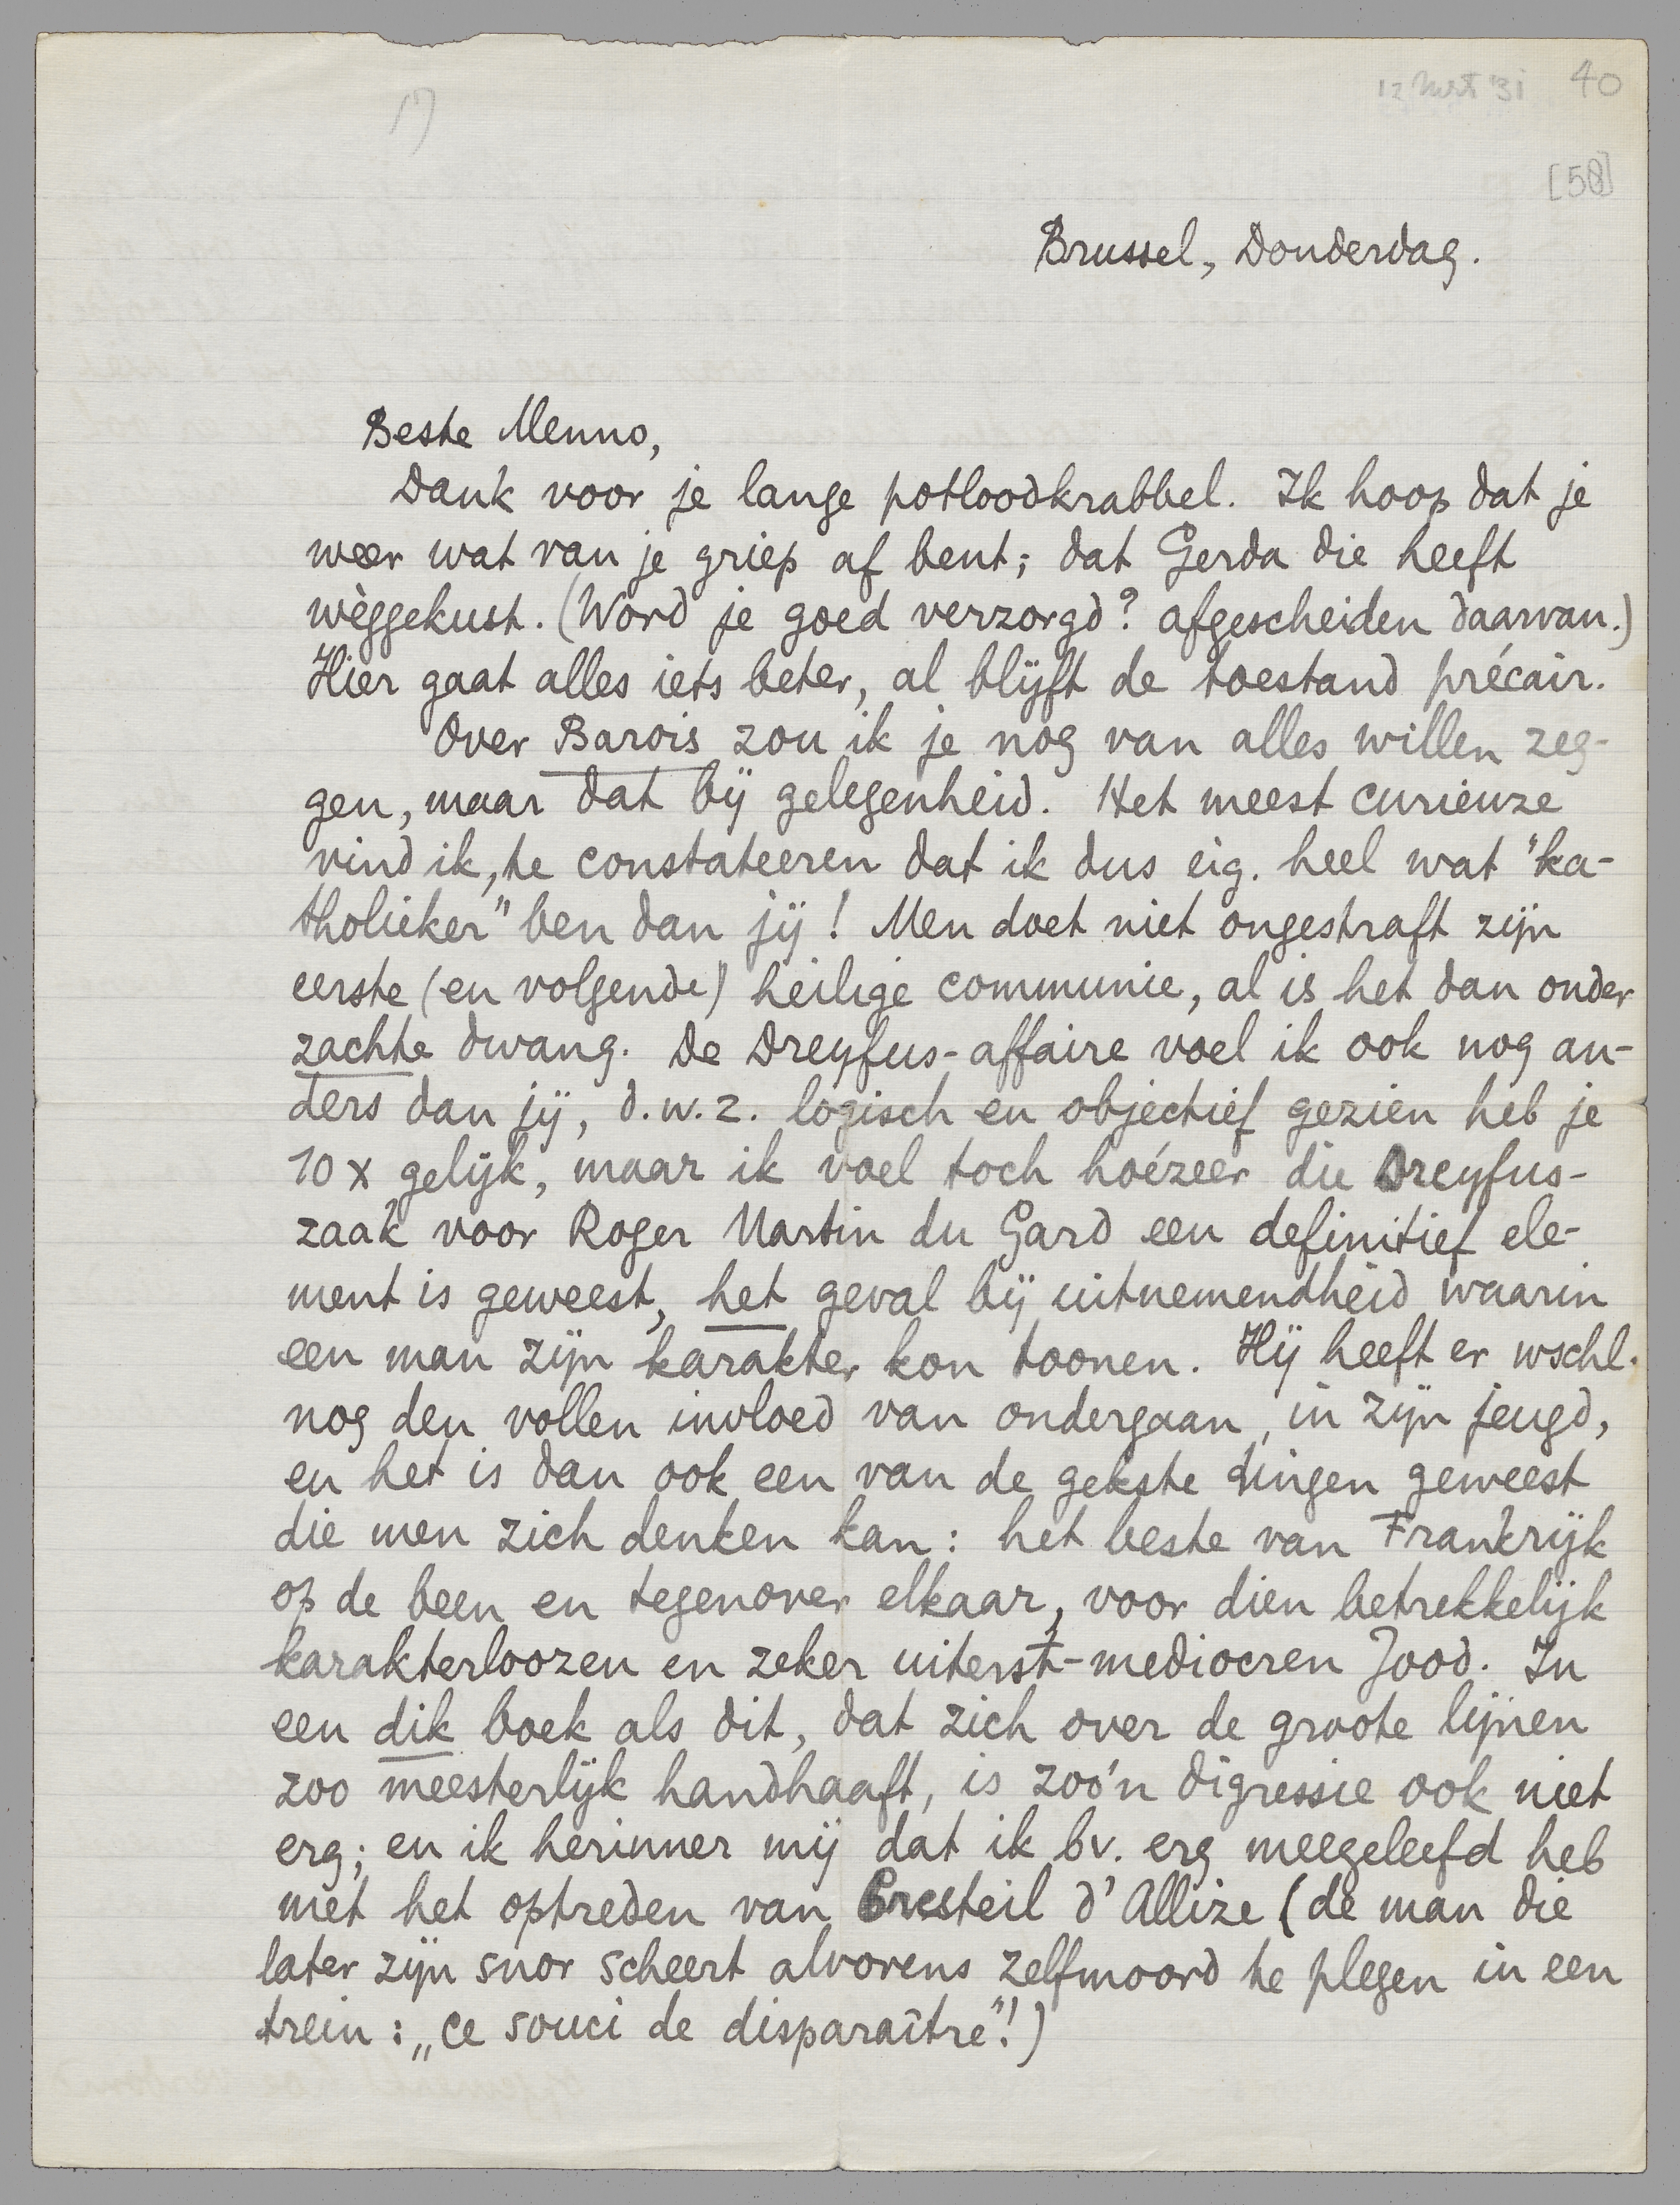 17
12 mrt '31 40
[58]
Brussel, Donderdag.
Beste Menno,
Dank voor je lange potloodkrabbel. Ik hoop dat je
weer wat van je griep af bent; dat Gerda die heeft
wèggekust. (Word je goed verzorgd? afgescheiden daarvan.)
Hier gaat alles iets beter, al blijft de toestand précair.
Over Barois zou ik je nog van alles willen zeg-
gen, maar dat bij gelegenheid. Het meest curieuze
vind ik, te constateeren dat ik dus eig. heel wat "ka-
tholieker" ben dan jij! Men doet niet ongestraft zijn
eerste (en volgende) heilige communie, al is het dan onder
zachte dwang. De Dreyfus-affaire voel ik ook nog an-
ders dan jij, d.w.z. logisch en objectief gezien heb je
10 x gelijk, maar ik voel toch hoézeer die Dreyfus-
zaak voor Roger Martin du Gard een definitief ele-
ment is geweest, het geval bij uitnemendheid waarin
een man zijn karakter kon toonen. Hij heeft er wschl.
nog den vollen invloed van ondergaan, in zijn jeugd,
en het is dan ook een van de gekste dingen geweest
die men zich denken kan: het beste van Frankrijk
op de been en tegenover elkaar, voor dien betrekkelijk
karakterloozen en zeker uiterst-mediocren Jood. In
een dik boek als dit, dat zich over de groote lijnen
zoo meesterlijk handhaaft, is zoo'n digressie ook niet
erg; en ik herinner mij dat ik bv. erg meegeleefd heb
met het optreden van Cresteil d'Allize (de man die
later zijn snor scheert alvorens zelfmoord te plegen in een
trein: „ce souci de disparaître"!)